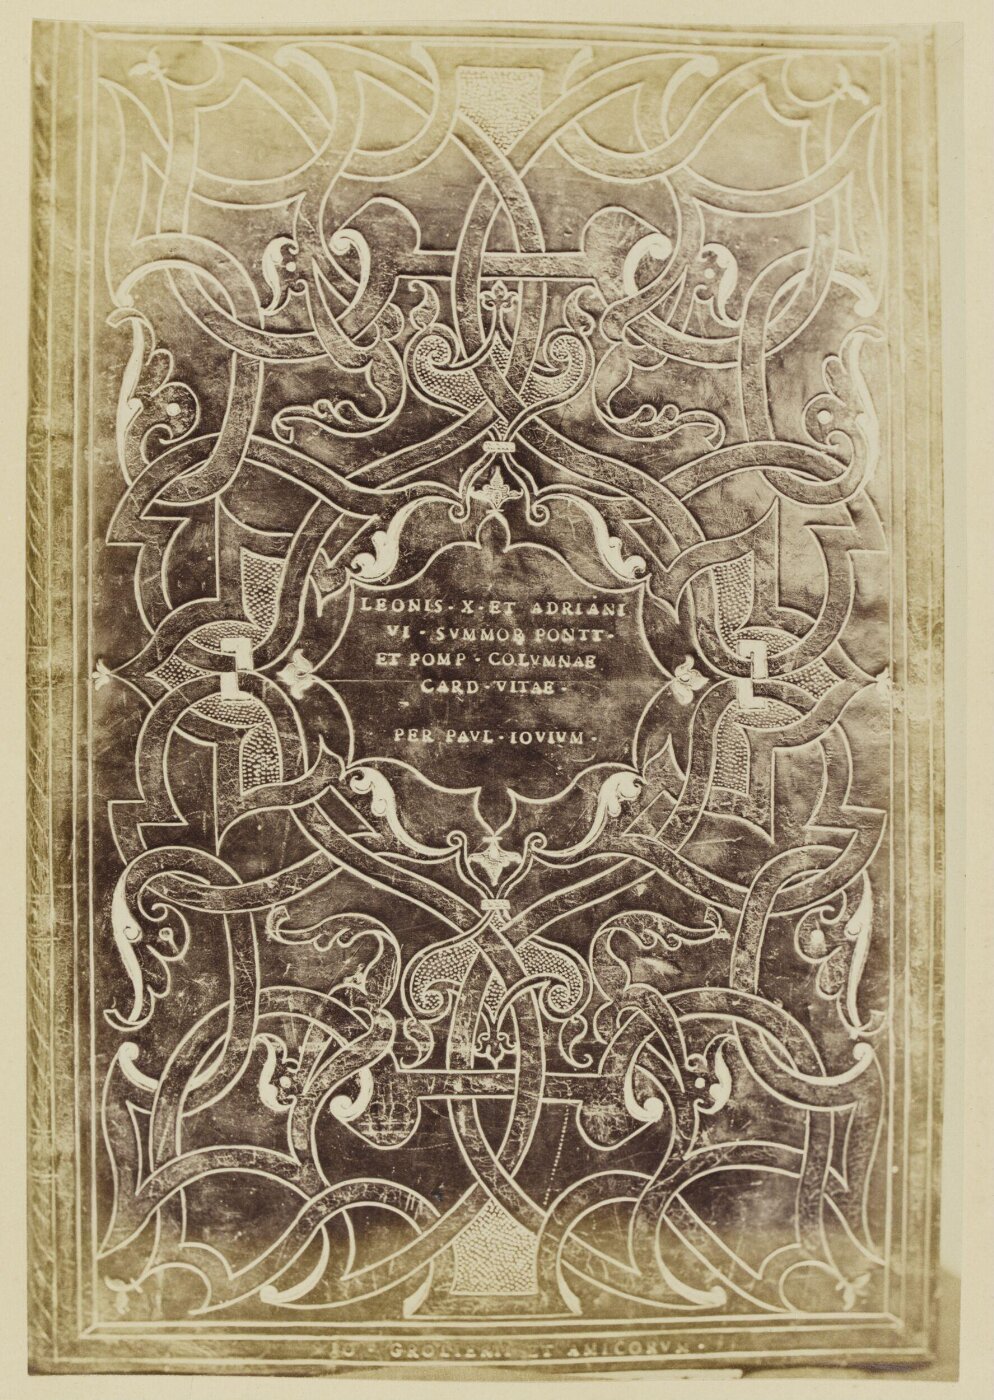 LEONIS · X · ET ADRIANI
VI · SVMMOR PONTT ·
ET POMP · COLVMNAE
CARD · VITAE ·
PER PAVL · IOVIVM ·
IO · GROLIERII ET AMICORVM ·